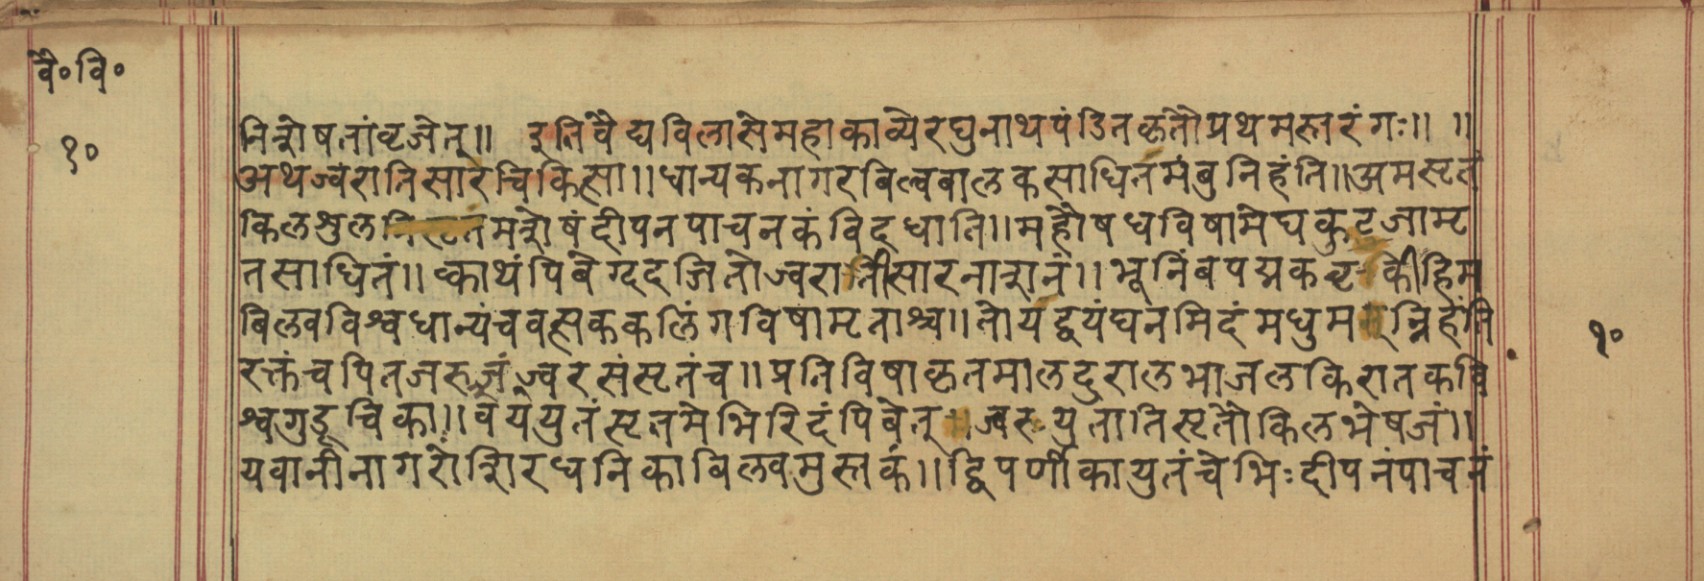 वै॰वि॰
१०
निःशेषतांव्रजेत्॥ इतिवैद्यविलासेमहाकाव्येरघुनाथपंडितकृतौप्रथमस्तरंगः॥ ॥
अथज्वरातिसारचिकित्सा॥धान्यकनागरबिल्वबालकसाधितमंबुनिहंति॥अमसृतं
किलशुलनि मशेषंदीपनपाचनकंविदधाति॥महौषधविषामेघकुटजामृ
तसाधितं॥क्वाथंपिबेग्ददजितोज्वरातीसारनाशनं॥भूनिंबपद्मक हिम
बिलवविश्वधान्यंचवत्सककलिंगविषामृताश्च॥तोयंद्वयंघनमिदंमधुम न्निहंति
रक्तंचपितजरुजंज्वरसंसृतंच॥प्रतिविषाकृतमालदुरालभाजलकिरातकवि
श्वगुडूचिका॥वययुतंसृतमेभिरिदंपिबेत् ज्वरयुतातिसृतौकिलभेषजं॥
यवानीनागरोशिरधनिकाबिलवमुस्तकं॥द्विपर्णीकायुतंचेभिःदीपनंपाचनं
१०